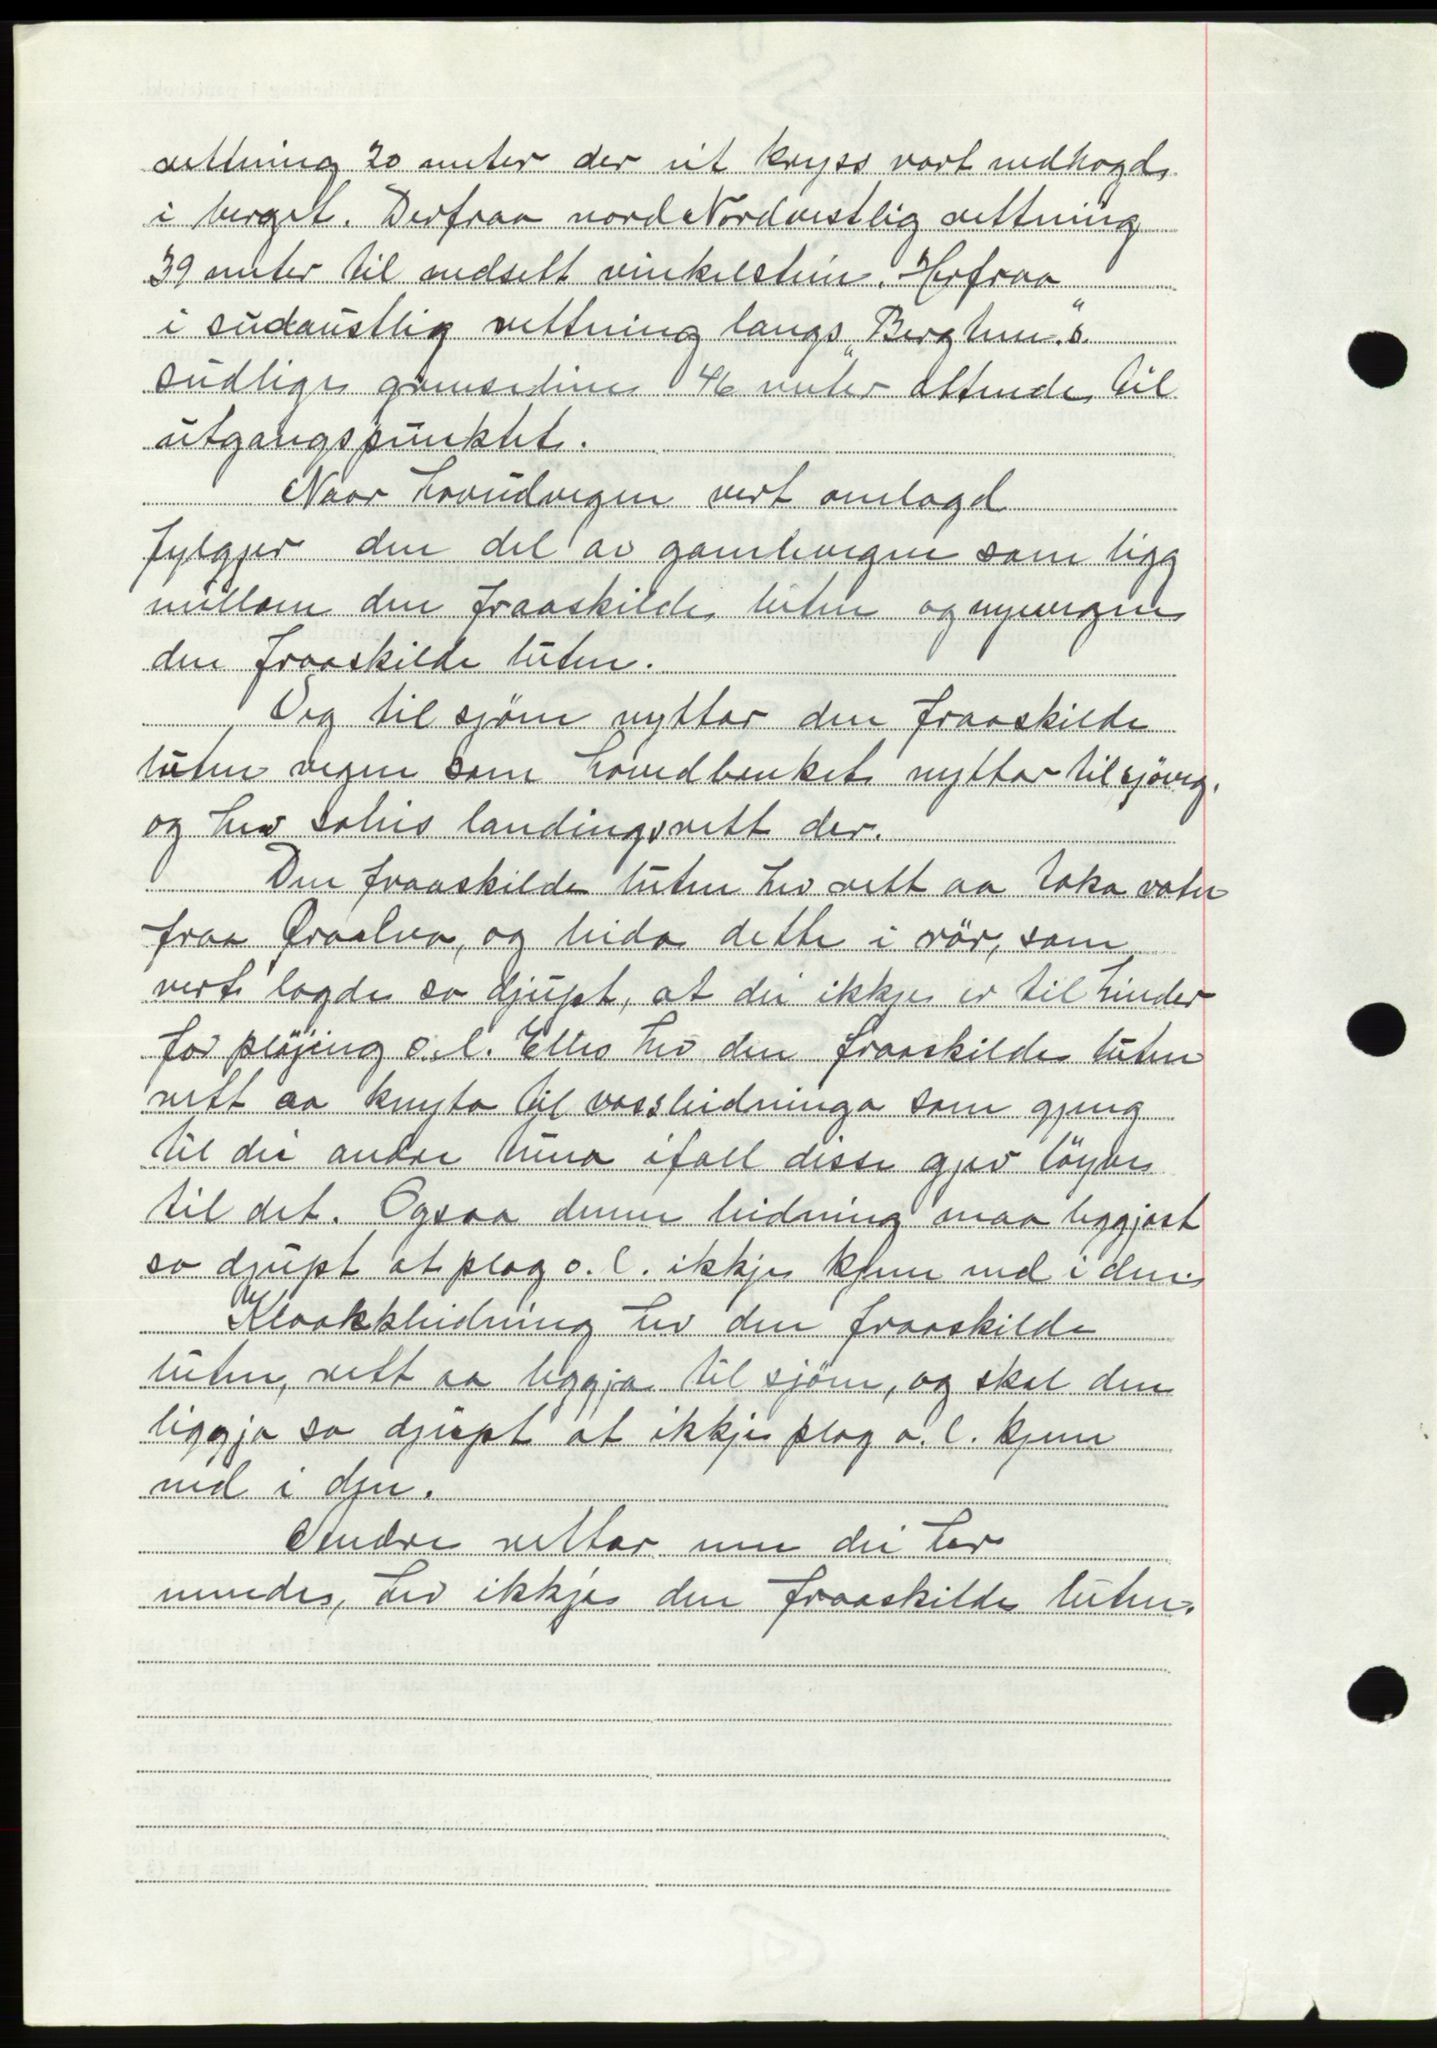 rettning 20 meter der eit kryss vart nedhogd
i berget. Derfraa nord Nordvestlig rettning
39 meter til nedsett vinkelstein. Herfraa
i sudaustlig rettning langs „Bergheim"s
sudlige grenseline 46 meter attende til
utgangspunktet.
Naar hovudvegen vert omlagd
fylgjer den del av gamlevegen som ligg
millom den fraaskilde luten og nyevegen
den fraaskilde luten.
Veg til sjöen nyttar den fraaskilde
luten vegen som hovedbruket nyttar til sjöveg,
og hev soleis landingsrett der.
Den fraaskilde luten hev rett aa taka vatn
fraa Øraelva, og leida dette i rör, som
vert lagde so djupt, at dei ikkje er til hinder
for plöjing o.l. Elles hev den fraaskilde luten
rett aa knyta til vassleidninga som gjeng
til dei andre tuna ifall disse gjev löyve
til det. Ogsaa denne leidning maa leggjast
so djupt at plog o.l. ikkje kjem ned i den.
Kloakkleidning hev den fraaskilde
luten, rett aa leggja til sjöen, og skal den
liggja so djupt at ikkje plog o.l. kjem
ned i den.
Andre rettar enn dei her
nemde, hev ikkje den fraaskilde luten.